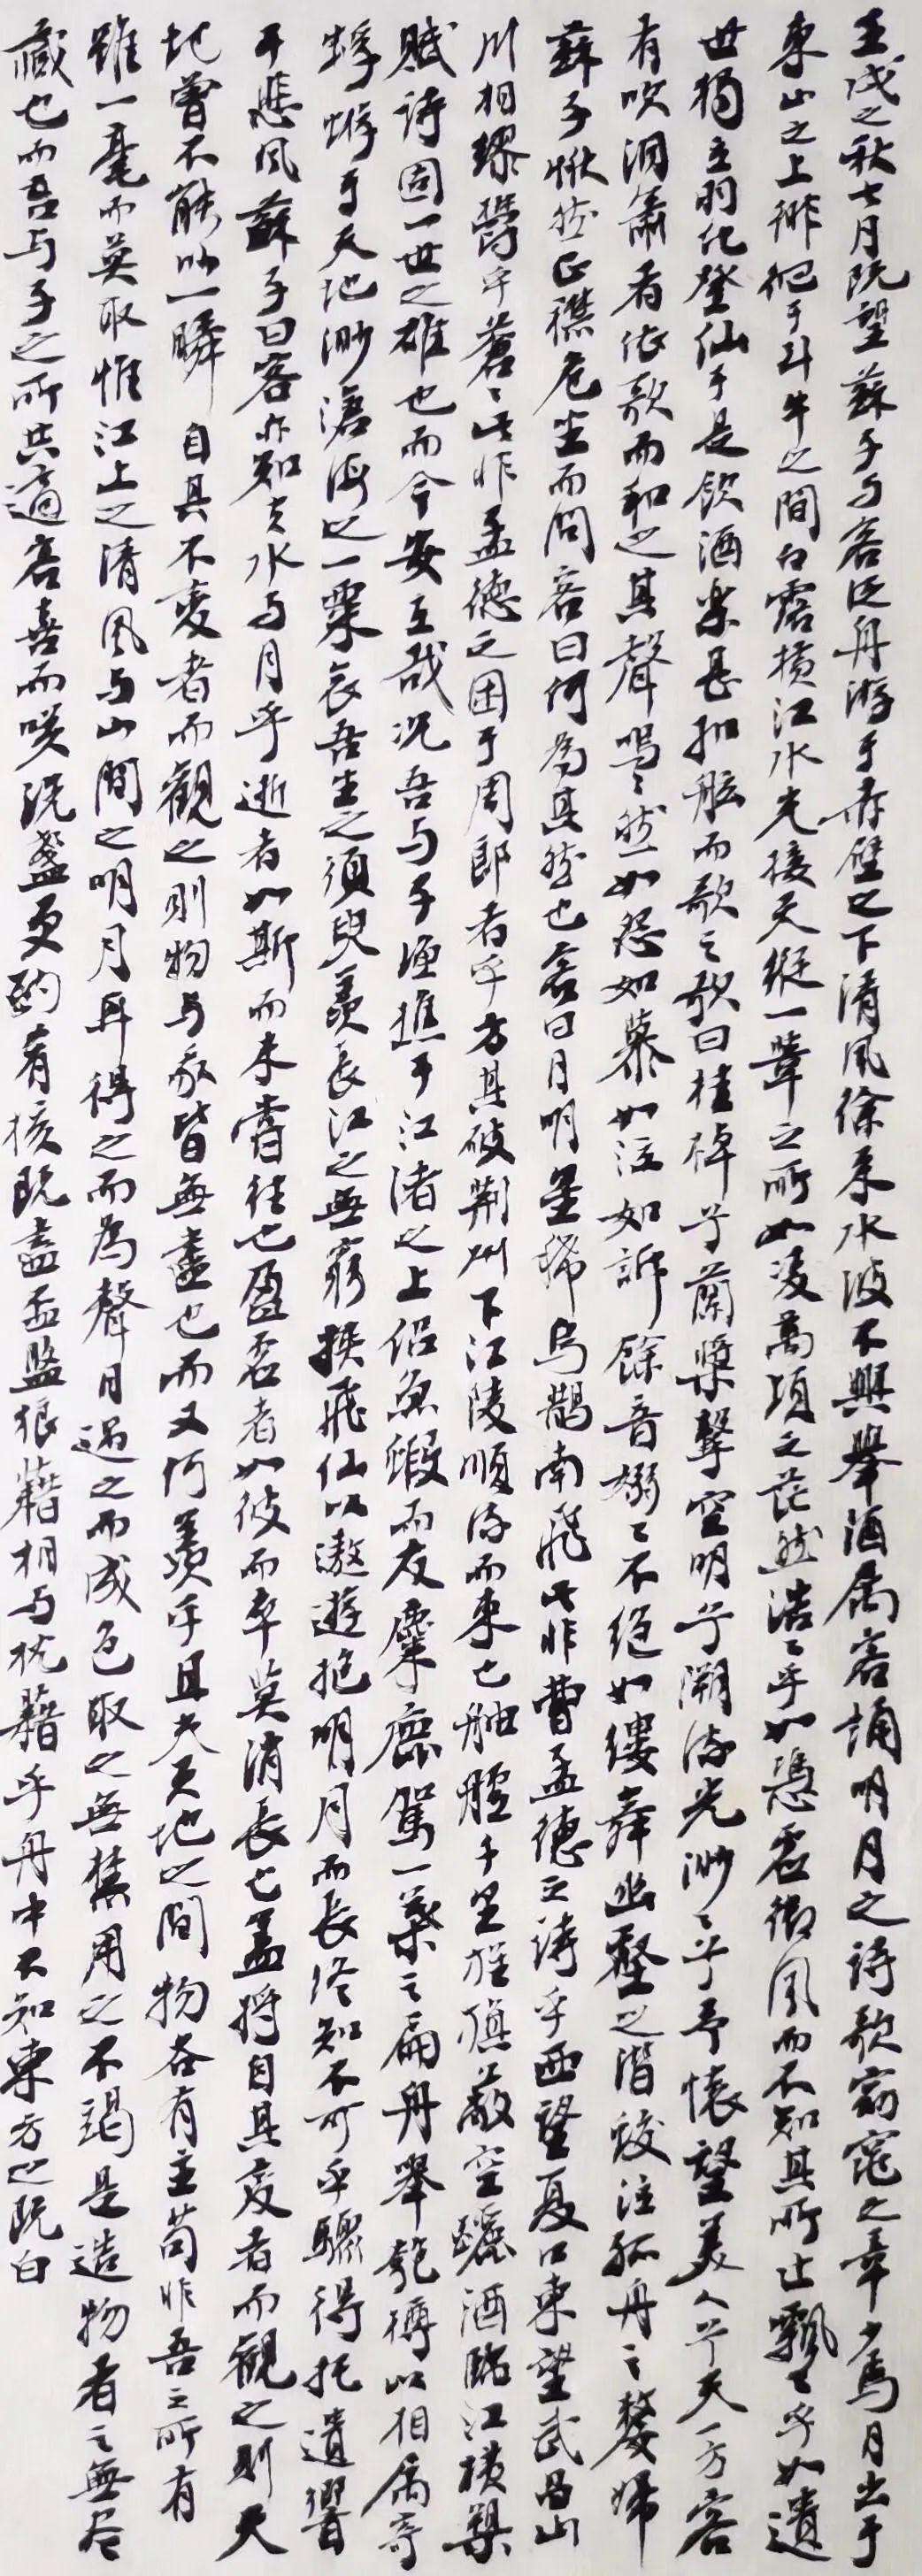 壬戌之秋七月既望蘇子与客泛舟游于赤壁之下清風徐来水波不興舉酒属客誦明月之詩歌窈窕之章少焉月出于
東山之上徘徊于斗牛之間白露横江水光接天縱一葦之所如凌萬頃之茫然浩々乎如馮虚御風而不知其所止飄々乎如遺
世獨立羽化登仙于是飲酒楽甚扣舷而歌之歌曰桂棹兮蘭槳擊空明兮溯流光渺々兮予懐望美人兮天一方客
有吹洞簫者依歌而和之其聲嗚々然如怨如慕如泣如訴餘音嫋々不绝如缕舞幽壑之潜蛟泣孤舟之嫠婦
蘇子愀然正襟危坐而問客曰何為其然也客曰月明星稀烏鵲南飛此非曹孟德之詩乎西望夏口東望武昌山
川相繆鬱乎蒼々此非孟德之困于周郎者乎方其破荆州下江陵順流而東也舳艫千里旌旗蔽空釃酒臨江横槊
賦诗固一世之雄也而今安在哉况吾与子漁樵于江渚之上侣魚蝦而友麋鹿駕一葉之扁舟舉匏樽以相属寄
蜉蝣于天地渺滄海之一粟哀吾生之須臾羡長江之無窮挟飛仙以遨遊抱明月而長终知不可乎驟得托遺響
于悲風蘇子曰客亦知夫水与月乎逝者如斯而未嘗往也盈虚者如彼而卒莫消長也盖將自其变者而觀之则天
地曾不能以一瞬自其不变者而觀之則物与我皆無盡也而又何羡乎且夫天地之間物各有主苟非吾之所有
雖一毫而莫取惟江上之清風与山間之明月耳得之而為聲目遇之而成色取之無禁用之不竭是造物者之無尽
藏也而吾与子之所共適客喜而笑洗盏更酌肴核既盡杯盤狼藉相与枕藉乎舟中不知東方之既白